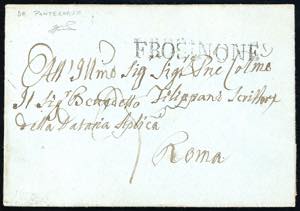 DA PONTECORVO
FROSINONE
All Illmo Sig Sigr Pne Colmo
Il Sigr Benedetto Filippani Scrittore
della Dataria Aplica
Roma